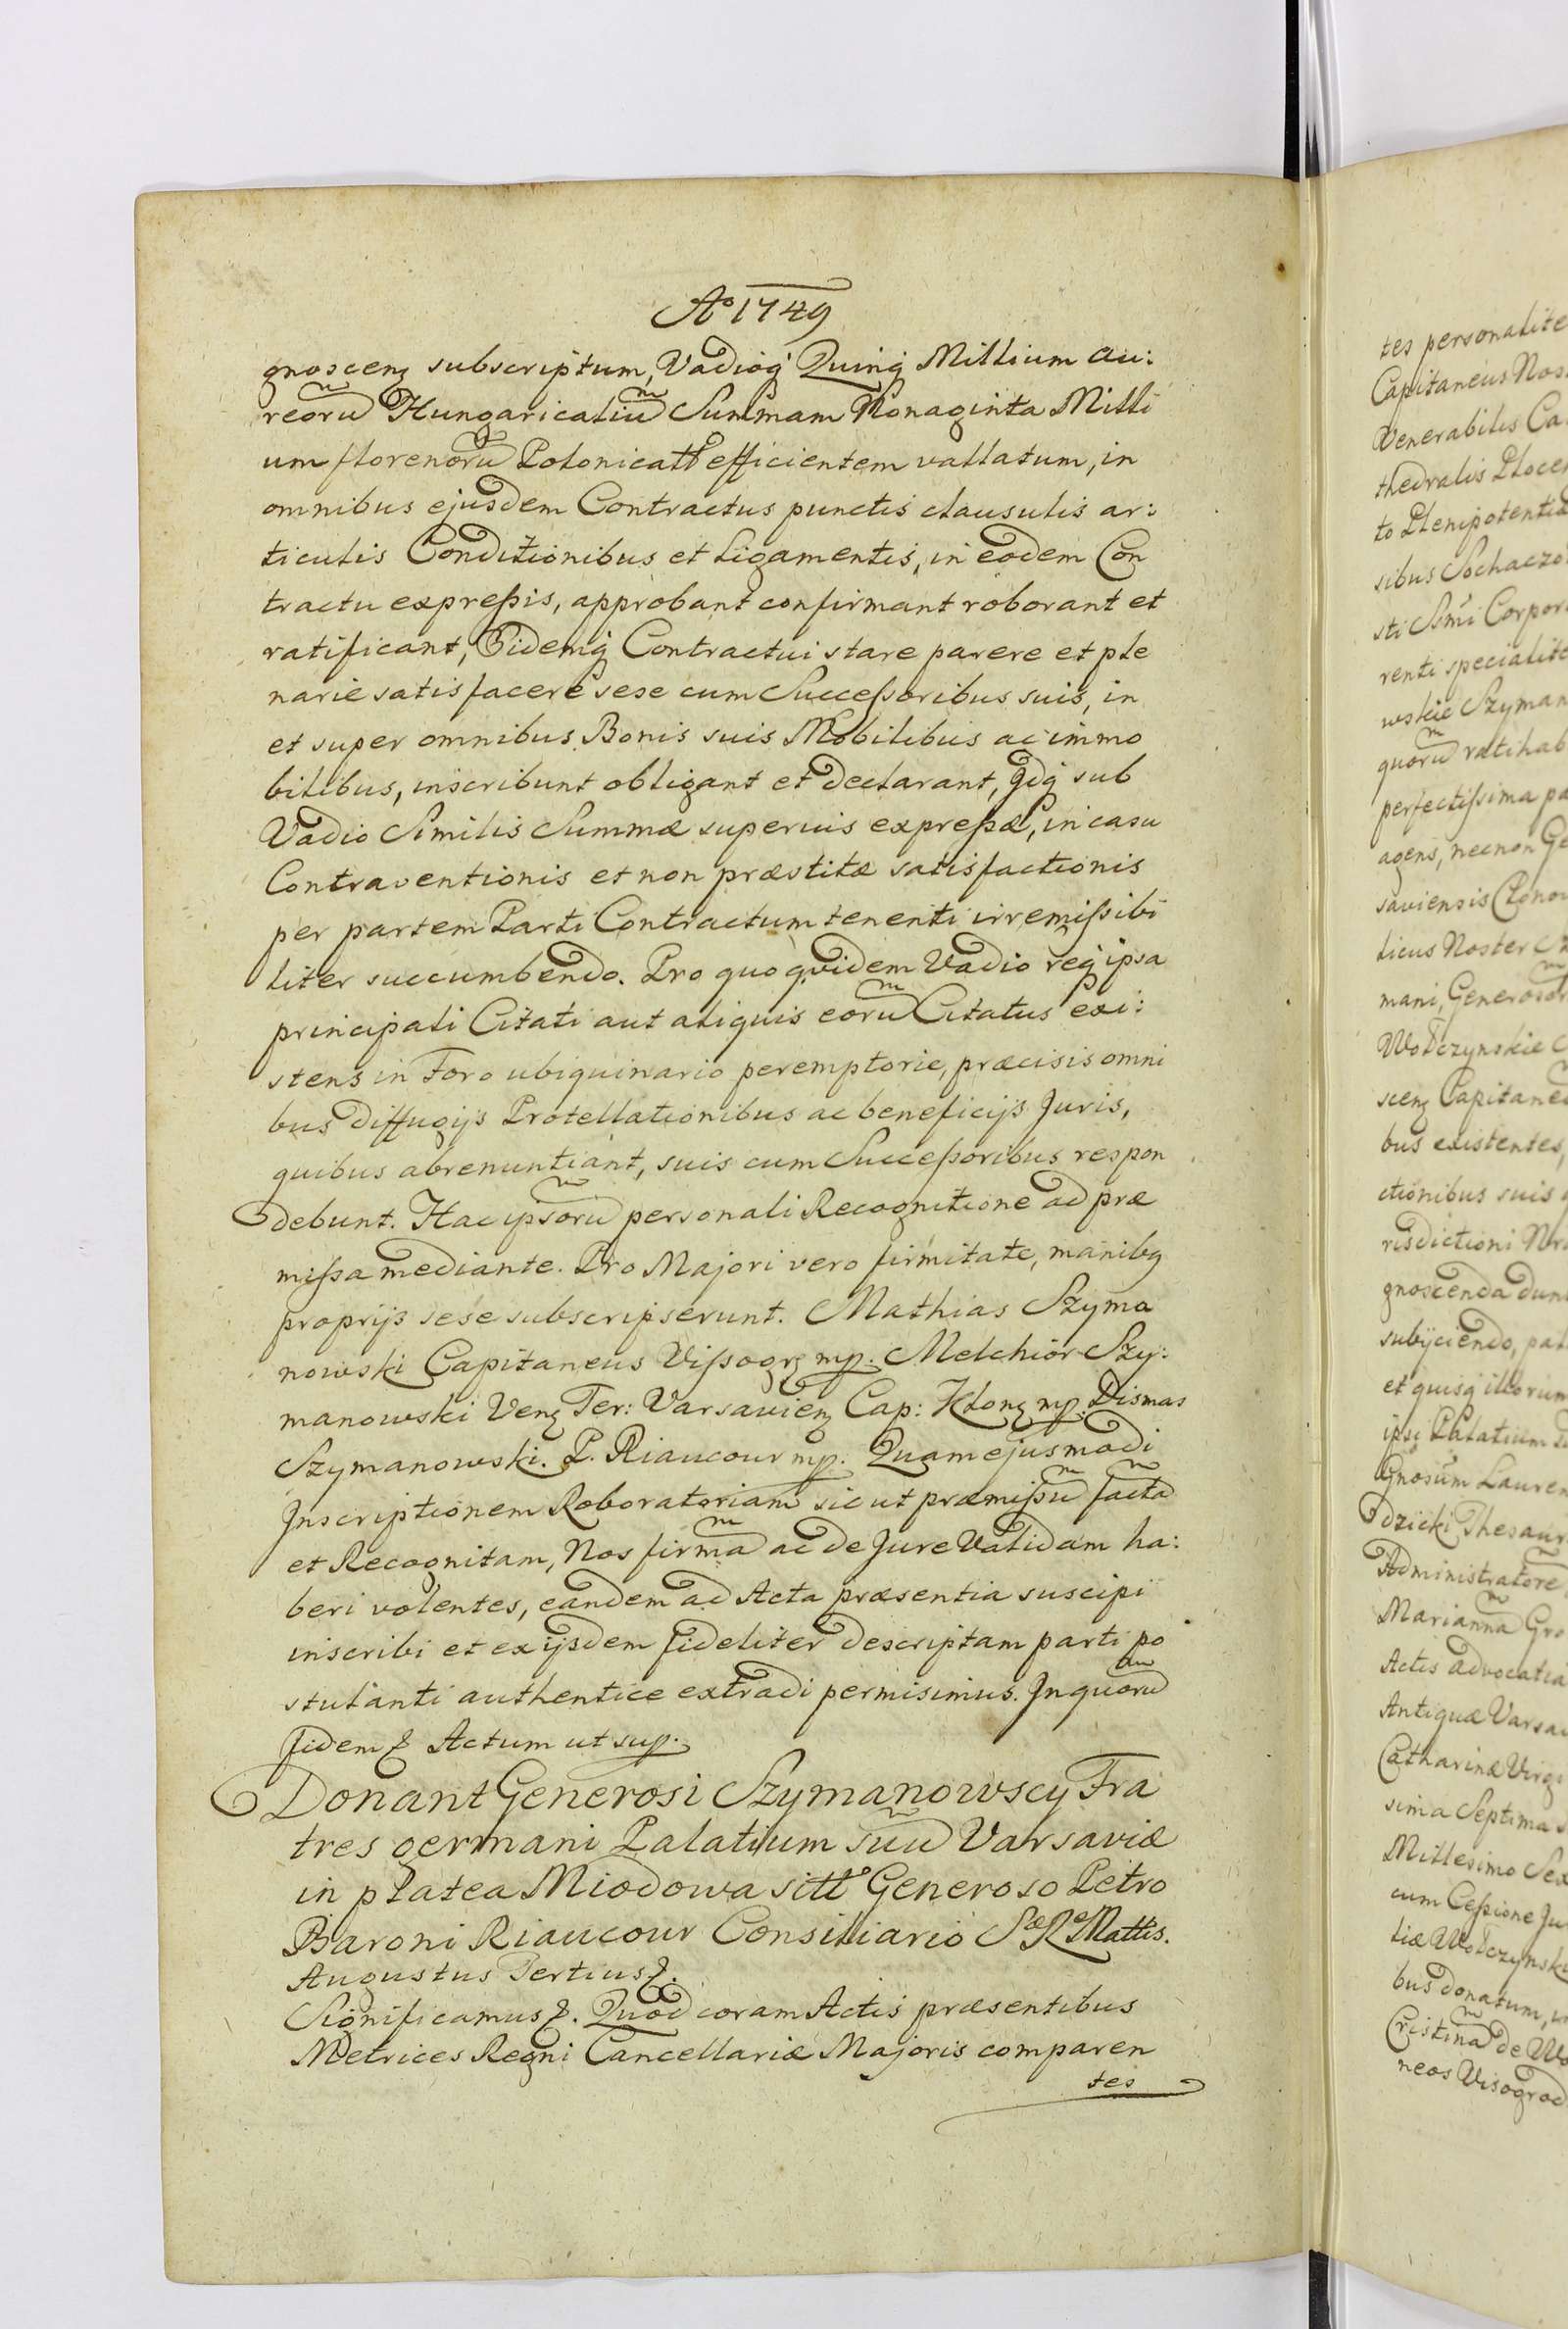 Aº 1749
gnoscenꝫ subscriptum, Vadioq́ Quinq́ Millium au:
reorũ Hungaricaliũ Summam Nonaginta Milli
um florenorũ Polonicall efficientem vallatum, in
omnibus ejusdem Contractus punctis clausulis ar:
ticulis Conditionibus et Ligamentis, in eodem Con
tractu expressis, approbant confirmant roborant et
ratificant, Eidemq́ Contractui stare parere et ple
narie satisfacere sese cum Successoribus suis, in
et super omnibus Bonis suis Mobilibus ac immo
bilibus, inscribunt obligant et declarant, Idq́ sub
Vadio Similis Summæ superius expressæ, in casu
Contraventionis et non præstitæ satisfactionis
per partem Parti Contractum tenenti irremissibi
liter succumbendo. Pro quo quidem Vadio req́ ipsa
principali Citati aut aliquis eorũ Citatus exi:
stens in Foro ubiquinario peremptorie, præcisis omni
bus diffugijs Protellationibus ac beneficijs Juris,
quibus abrenuntiant, suis cum Successoribus respon
debunt. Hac ipsorũ personali Recognitione ad præ
missa mediante. Pro Majori vero firmitate, manibꝫ
proprijs sese subscripserunt. Mathias Szyma
nowski Capitaneus Vissogrꝫ mp. Melchior Szy:
manowski Venꝫ Ter: Varsavienꝫ Cap: Klonꝫ mp. Dismas
Szymanowski. P. Riaucour mp. Quam ejusmodi
Inscriptionem Roboratoriam sic ut præmissũ facta͂
et Recognitam, Nos firma͂ ac de Jure Validam ha:
beri volentes, eandem ad Acta præsentia suscipi
inscribi et ex ijsdem fideliter descriptam parti po
stulanti authentice extradi permisimus. In quorũ
fidem ꝛ Actum ut sup.
Donant Generosi Szymanowscy Fra
tres germani Palatium suũ Varsaviæ
in platea Miodowa sittº Generoso Petro
Baroni Riaucour Consiliario Sæ Ræ Mattis.
Augustus Tertius ꝛ.
Significamus ꝛ. Quod coram Actis præsentibus
Metrices Regni Cancellariæ Majoris comparen
tes
tes personalite
Capitaneus Nos
Venerabilis Ca
thedralis Ploce
to Plenipotentia
sibus Sochaczo
sti Smi Corpor
renti specialite
wskie Szyman
quorũ ratihab
perfectissima pa
agens, necnon Ge
saviensis Clono
licus Noster
mani, Generosor
Wołczynskie
scenꝫ Capitane
bus existentes,
ctionibus suis
risdictioni Nr
gnoscenda dun
subijciendo, pal
et quisq́ illorum
ipsi Palatium
Gnosum Lauren
dzicki Thesaur
Administratore
Marianna͂ Gro
Actis advocatia
Antiquæ Varsav
Catharinæ Virgi
sima Septima
Millesimo Sex
cum Cessione Ju
liæ Wołczynsk
bus donatum,
Cristina͂ de Wo
neos Visogrod